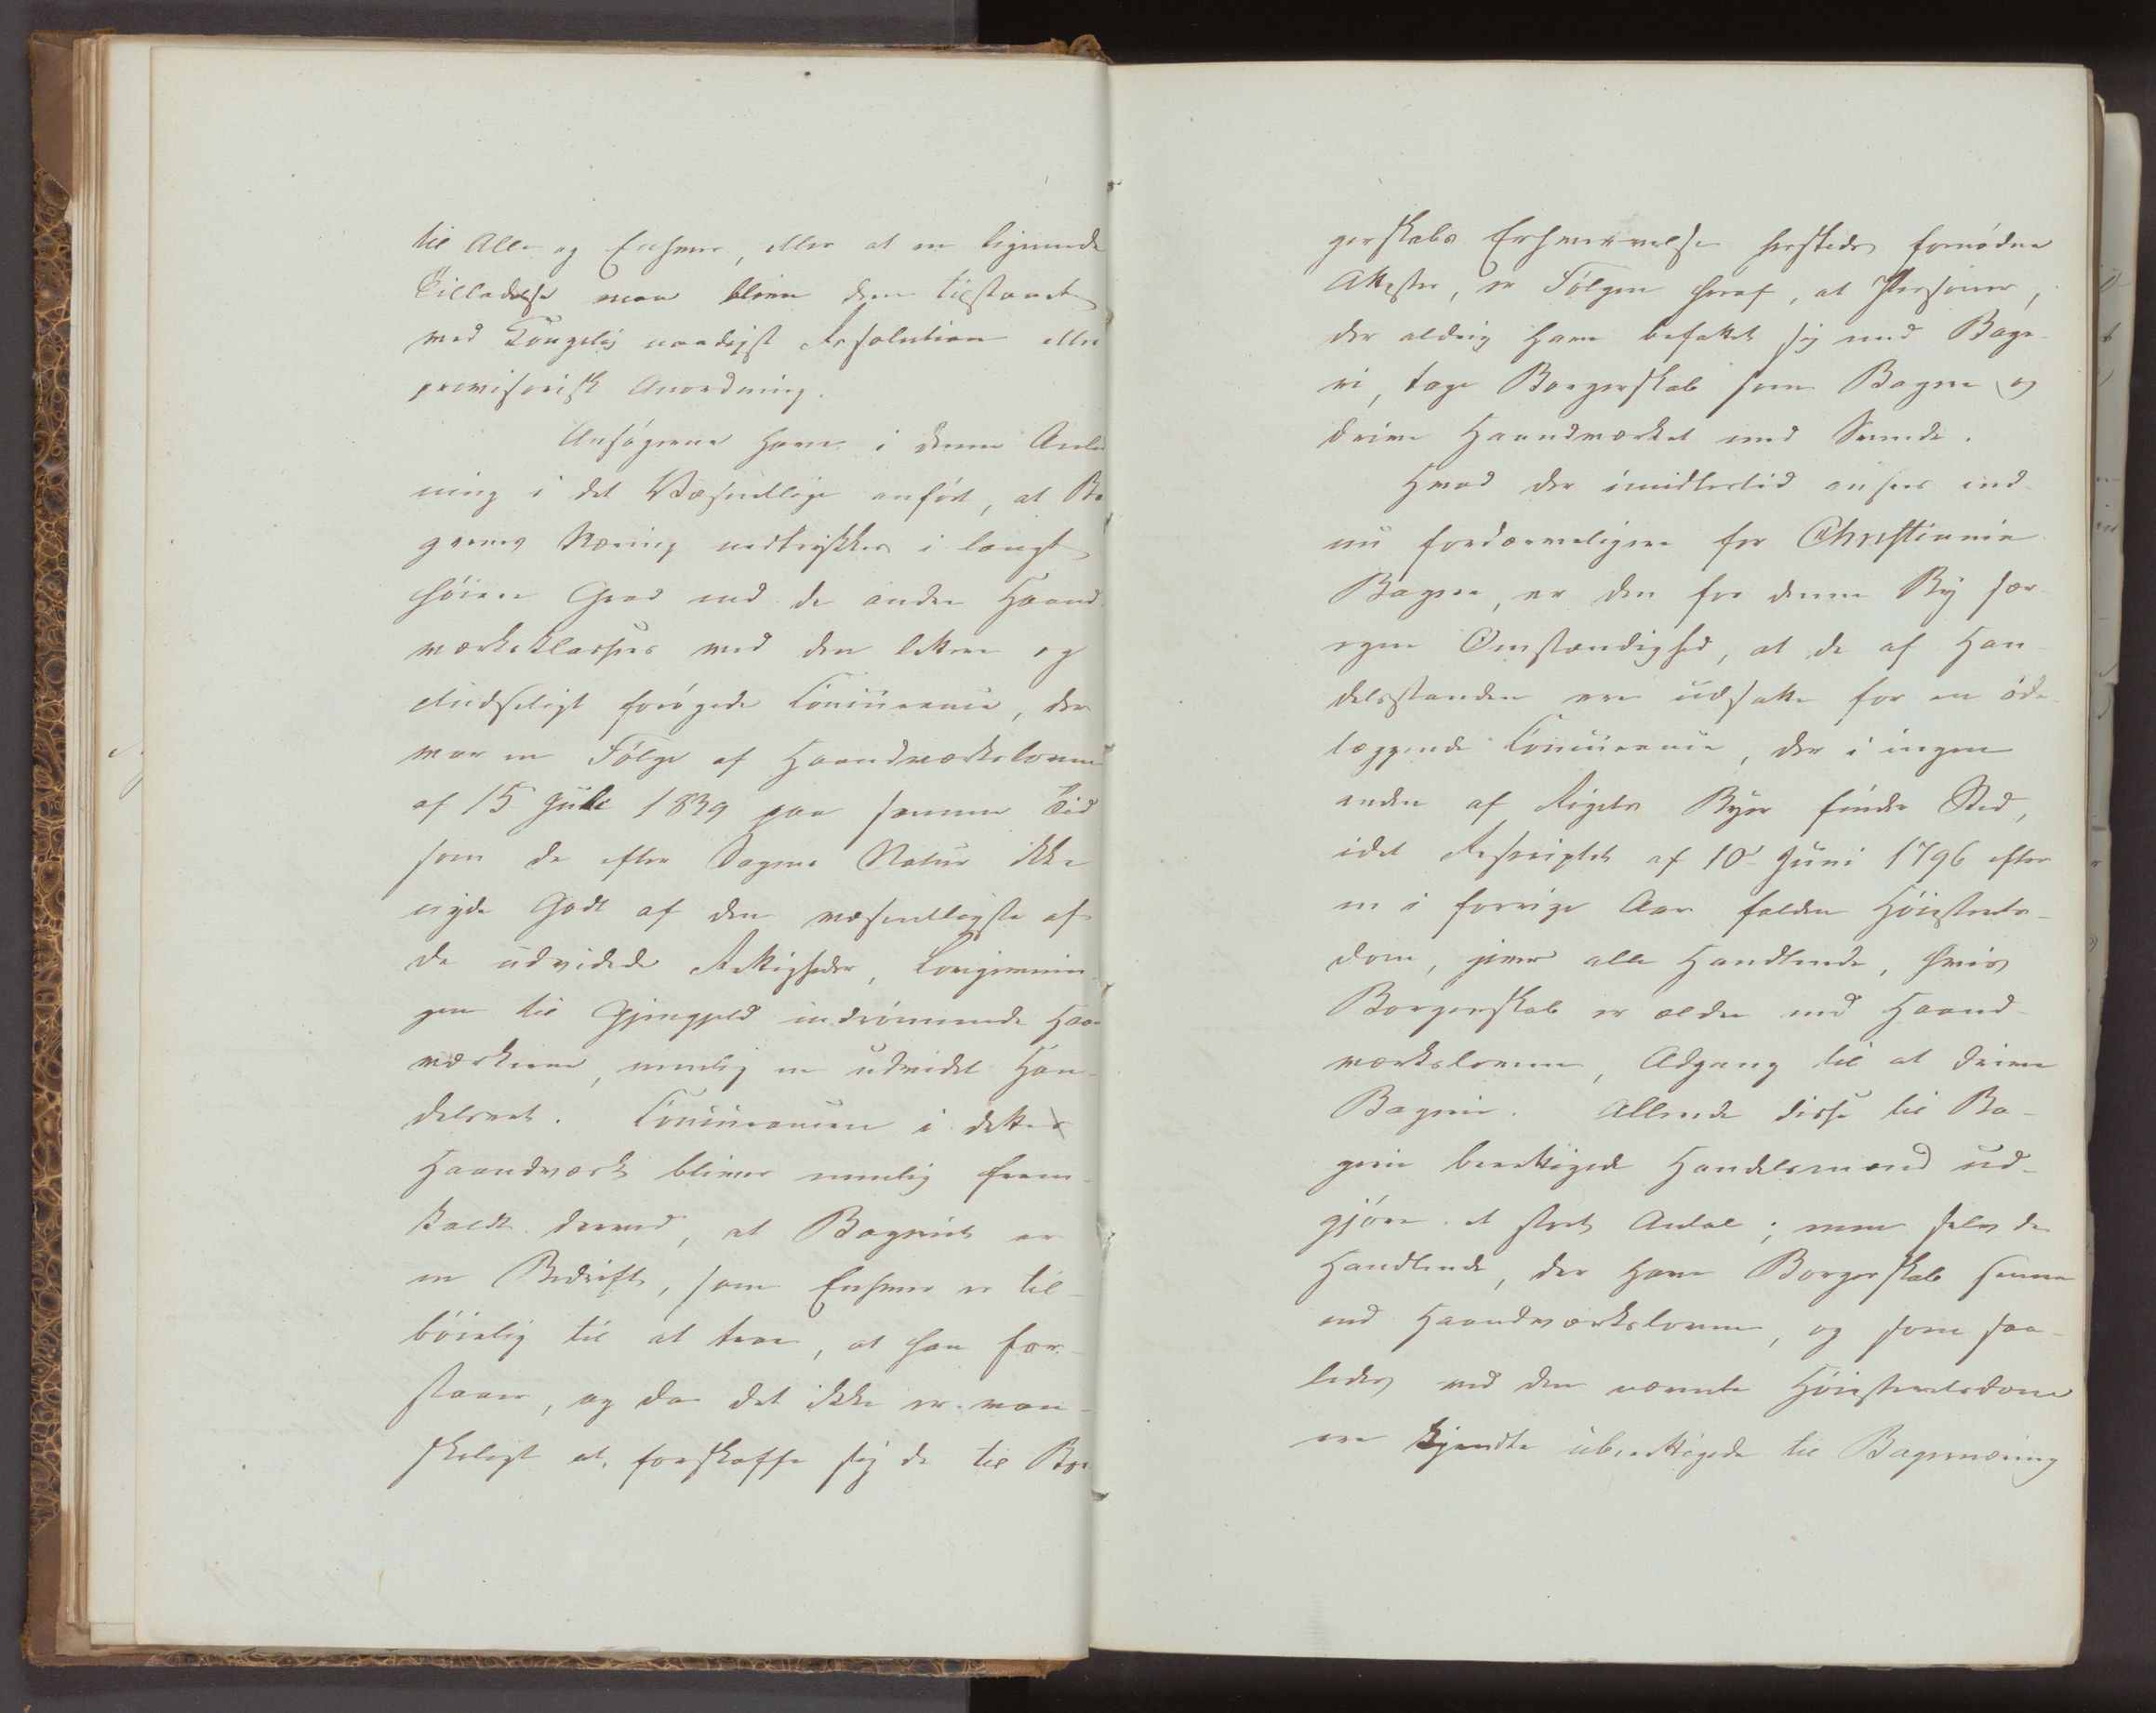 til Alle og Enhver, eller at en lignende
Tilladelse maa blive dem tilstaaet
ved Kongelig naadigst Resolution eller
provisorisk Anordning.
Ansøgerne have i denne Anled
ning i det Væsentlige anført, at Ba
gernes Næring nedtrykkes i langt
høiere Grad end de andre Haand
værksklassers ved den lettere og
ufeilbarligt forøgede Concurrence, der
var en Følge af Haandværksloven
af 15 Juli 1839 paa samme Tid
som de efter Sagens Natur ikke
nyde Godt af den væsentligste af
de udvidede Rettigheder, Lovgivnin
gen til Gjengjeld indrømmede Haand
værkerne, nemlig en udvidet Han-
delsret. Concurrencen i dette
Haandværk bliver nemlig frem-
kaldt derved, at Bageriet er
en Bedrift, som Enhver er til-
bøielig til at troe, at han for-
staaer, og da det ikke er van-
skeligt at forskaffe sig de til Bor-
gerskabs Erhvervelse herstedes fornødne
Attester, er Følgen heraf, at Personer,
der aldrig have befattet sig med Bage-
ri, tage Borgerskab som Bagere og
drive Haandværket med Svende.
Hvad der imidlertid ansees end-
nu fordærveligere for Christiania
Bagere, er den for denne By sær-
egne Omstændighed, at de af Han-
delsstanden ere udsatte for en øde-
læggende Concurrence, der i ingen
anden af Rigets Byer finder Sted,
idet Rescriptet af 10 Juni 1796 efter
en i forrige Aar falden Høiesterets-
dom, giver alle Handlende, hvis
Borgerskab er ældre end Haand-
værksloven, Adgang til at drive
Bageri. Allerede disse til Ba-
geri berettigede Handelsmænd ud-
gjøre et stort Antal; men selv de
Handlende, der have Borgerskab senere
end Haandværksloven, og som saa-
ledes ved den nævnte Høiesteretsdom
ere kjendte uberettigede til Bagernæring